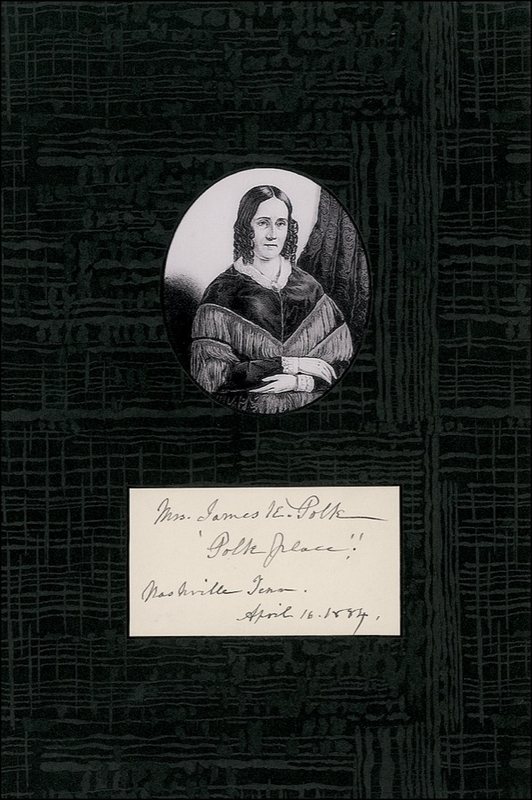 Mrs. James K. Polk
"Polk place"!
Nashville Tenn.
April 16. 1884.